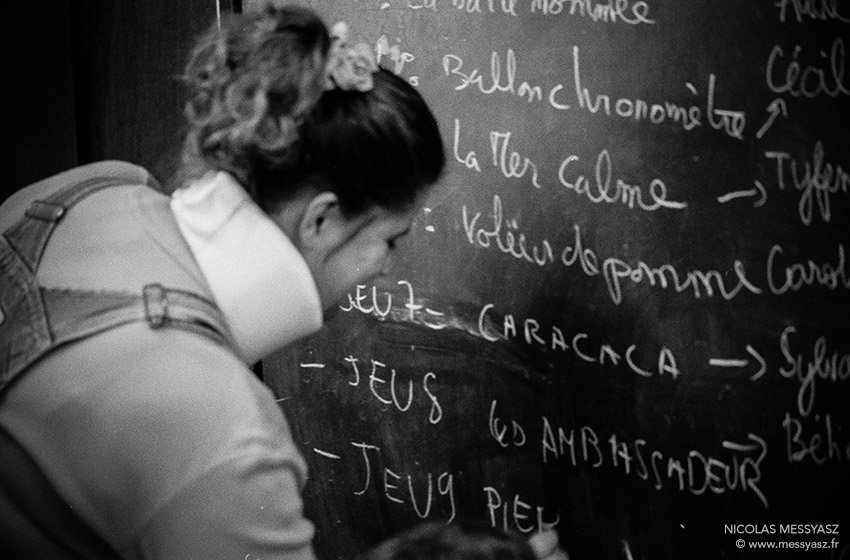 Ballon chronomètre ↗ Cécil
La Mer Calme → Tyfen
: Voleur de pomme Carol
JEU 7 = CARACACA → Sylva
- JEU 8 les AMBASSADEUR → Béh
- JEU 9 PIER
NICOLAS MESSYASZ
© www.messyasz.fr